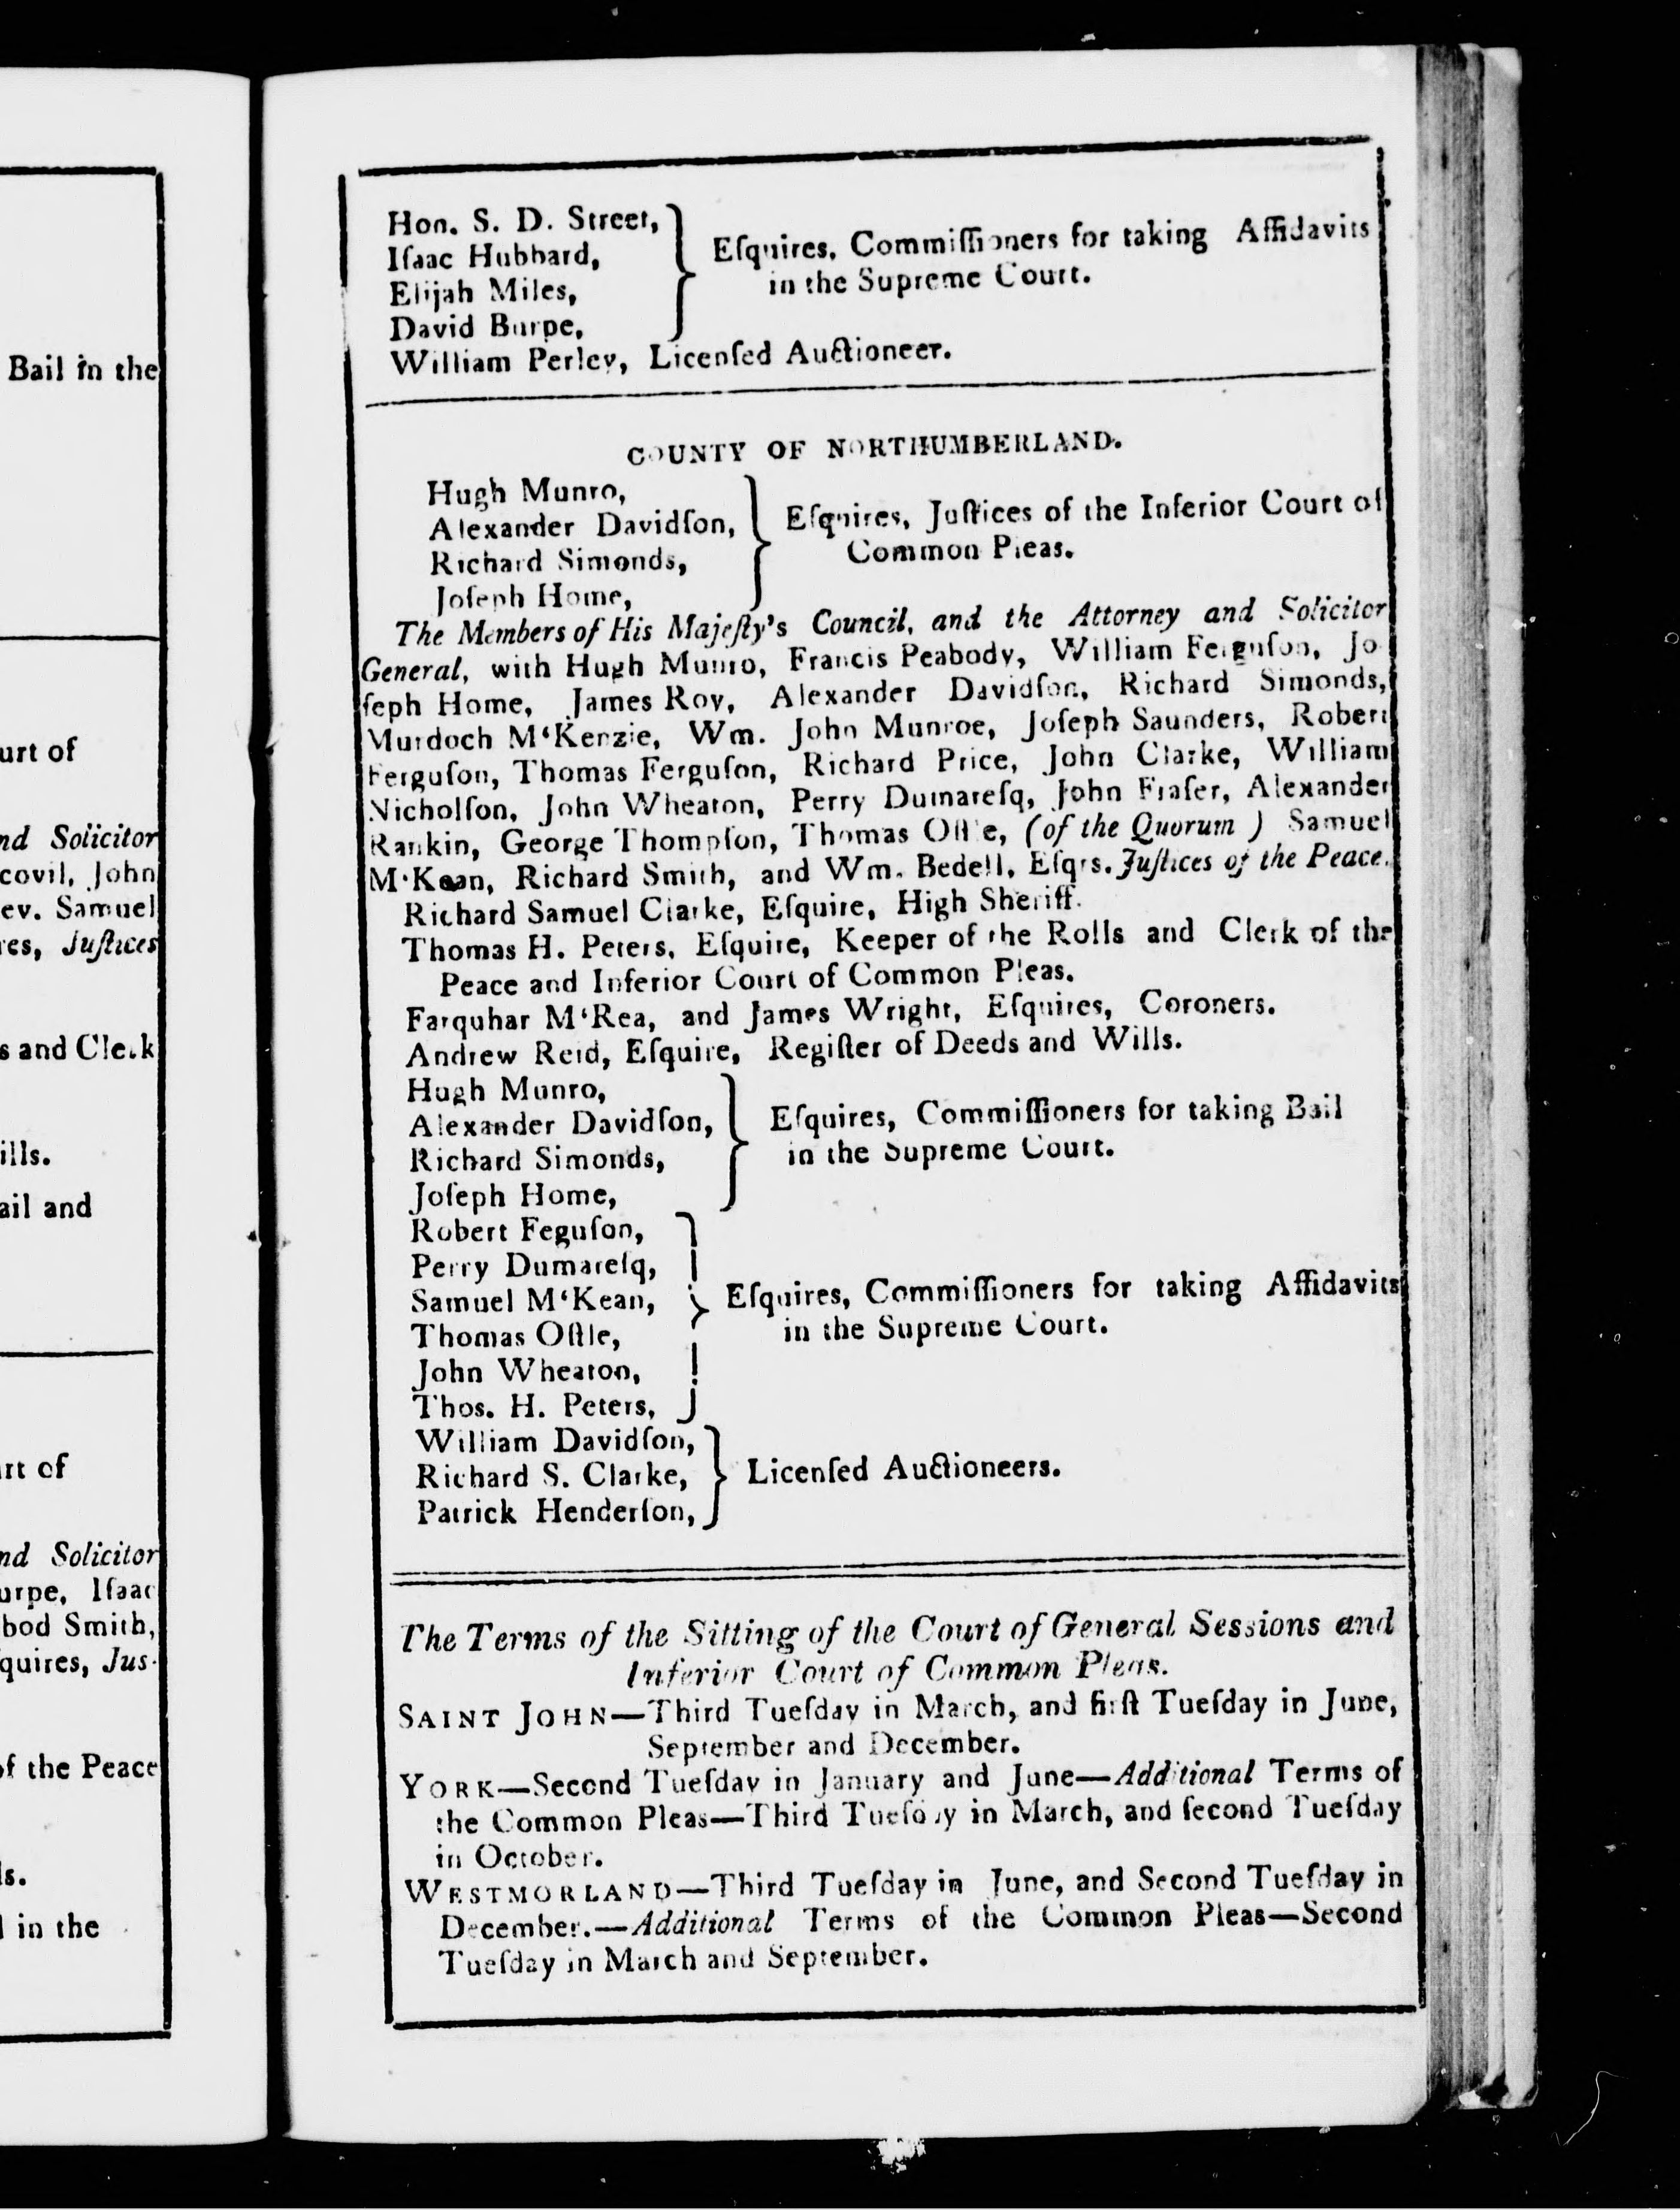 Bail in the
urt of
nd Solicitor
covil, John
ev. Samuel
res, Juſtices
s and Clerk
ills.
ail and
rt of
nd Solicitor
urpe, Iſaac
bod Smith,
quires, Juſ-
of the Peace
ls.
in the
Hon. S. D. Street,
Iſaac Hubbard,
Elijah Miles,
David Burpe,
Eſquires, Commiſſioners for taking Affidavits
in the Supreme Court.
William Perley, Licenſed Auctioneer.
COUNTY OF NORTHUMBERLAND.
Hugh Munro,
Alexander Davidſon,
Richard Simonds,
Joſeph Home,
Eſquires, Juſtices of the Inferior Court of
Common Pleas.
The Members of His Majeſty's Council, and the Attorney and Solicitor
General, with Hugh Munro, Francis Peabody, William Ferguſon, Jo
ſeph Home, James Roy, Alexander Davidſon, Richard Simonds,
Murdoch M‘Kenzie, Wm. John Munroe, Joſeph Saunders, Robert
Ferguſon, Thomas Ferguſon, Richard Price, John Clarke, William
Nicholſon, John Wheaton, Perry Dumareſq, John Fraſer, Alexander
Rankin, George Thompſon, Thomas Oſtle, (of the Quorum ) Samuel
M‘Kean, Richard Smith, and Wm. Bedell, Eſqrs. Juſtices of the Peace.
Richard Samuel Clarke, Eſquire, High Sheriff.
Thomas H. Peters, Eſquire, Keeper of the Rolls and Clerk of the
Peace and Inferior Court of Common Pleas.
Farquhar M‘Rea, and James Wright, Eſquires, Coroners.
Andrew Reid, Eſquire, Regiſter of Deeds and Wills.
Hugh Munro,
Alexander Davidſon,
Richard Simonds,
Joſeph Home,
Eſquires, Commiſſioners for taking Bail
in the Supreme Court.
Robert Feguſon,
Perry Dumareſq,
Samuel M‘Kean,
Thomas Oſtle,
John Wheaton,
Thos. H. Peters,
Eſquires, Commiſſioners for taking Affidavits
in the Supreme Court.
William Davidſon,
Richard S. Clarke,
Patrick Henderſon,
Licenſed Auctioneers.
The Terms of the Sitting of the Court of General Sessions and
Inferior Court of Common Pleas.
SAINT JOHN—Third Tueſday in March, and firſt Tueſday in June,
September and December.
YORK—Second Tueſday in January and June—Additional Terms of
the Common Pleas—Third Tueſday in March, and ſecond Tueſday
in October.
WESTMORLAND—Third Tueſday in June, and Second Tueſday in
December.—Additional Terms of the Common Pleas—Second
Tueſday in March and September.